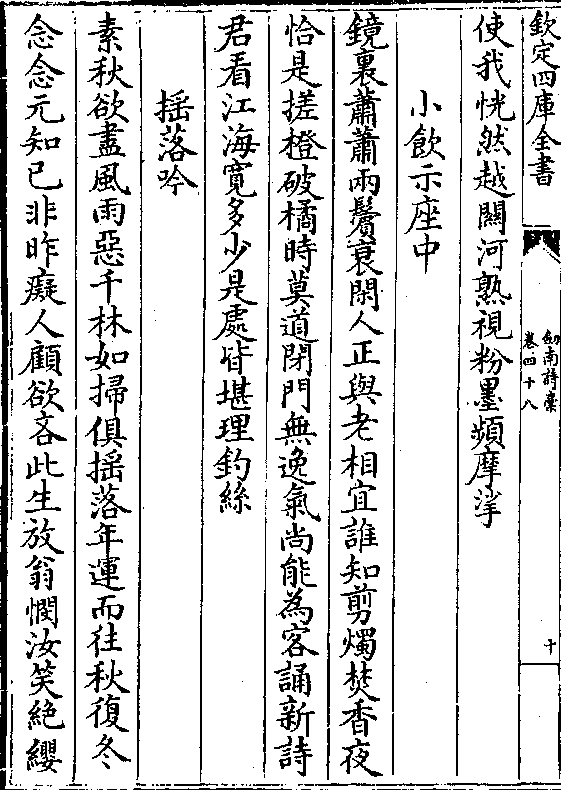 欽定四庫全書
劍南詩稾
卷四十八
十
使我恍然越關河熟視粉墨頻摩挲
小飲示座中
鏡裏蕭蕭兩鬢衰閑人正與老相宜誰知剪燭焚香夜
恰是搓橙破橘時莫道閉門無逸氣尚能為客誦新詩
君看江海寛多少是處皆堪理釣絲
揺落吟
素秋欲盡風雨惡千林如掃俱揺落年運而往秋復冬
念念元知已非昨癡人顧欲吝此生放翁憫汝笑絶纓